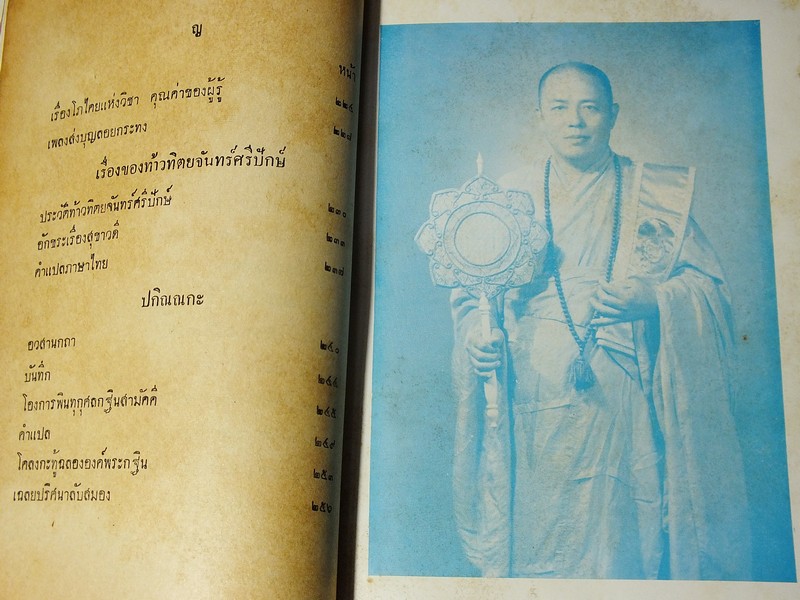 ญ
หน้า
เรื่องโภไคยแห่งวิชา คุณค่าของผู้รู้ ๒๒๔
เพลงส่งบุญลอยกระทง ๒๒๘
เรื่องของท้าวทิตยจันทร์ศรีปักษ์
ประวัติท้าวทิตยจันทร์ศรีปักษ์ ๒๓๐
อักขระเรื่องสุขาวดี ๒๓๓
คำแปลภาษาไทย ๒๓๗
ปกิณณกะ
อวสานกถา ๒๔๐
บันทึก ๒๔๔
โองการพินทุกุศลกฐินสามัคคี ๒๔๕
คำแปล ๒๔๙
โคลงกะทู้ฉลององค์พระกฐิน ๒๕๓
เฉลยปริศนาลับสมอง ๒๕๖